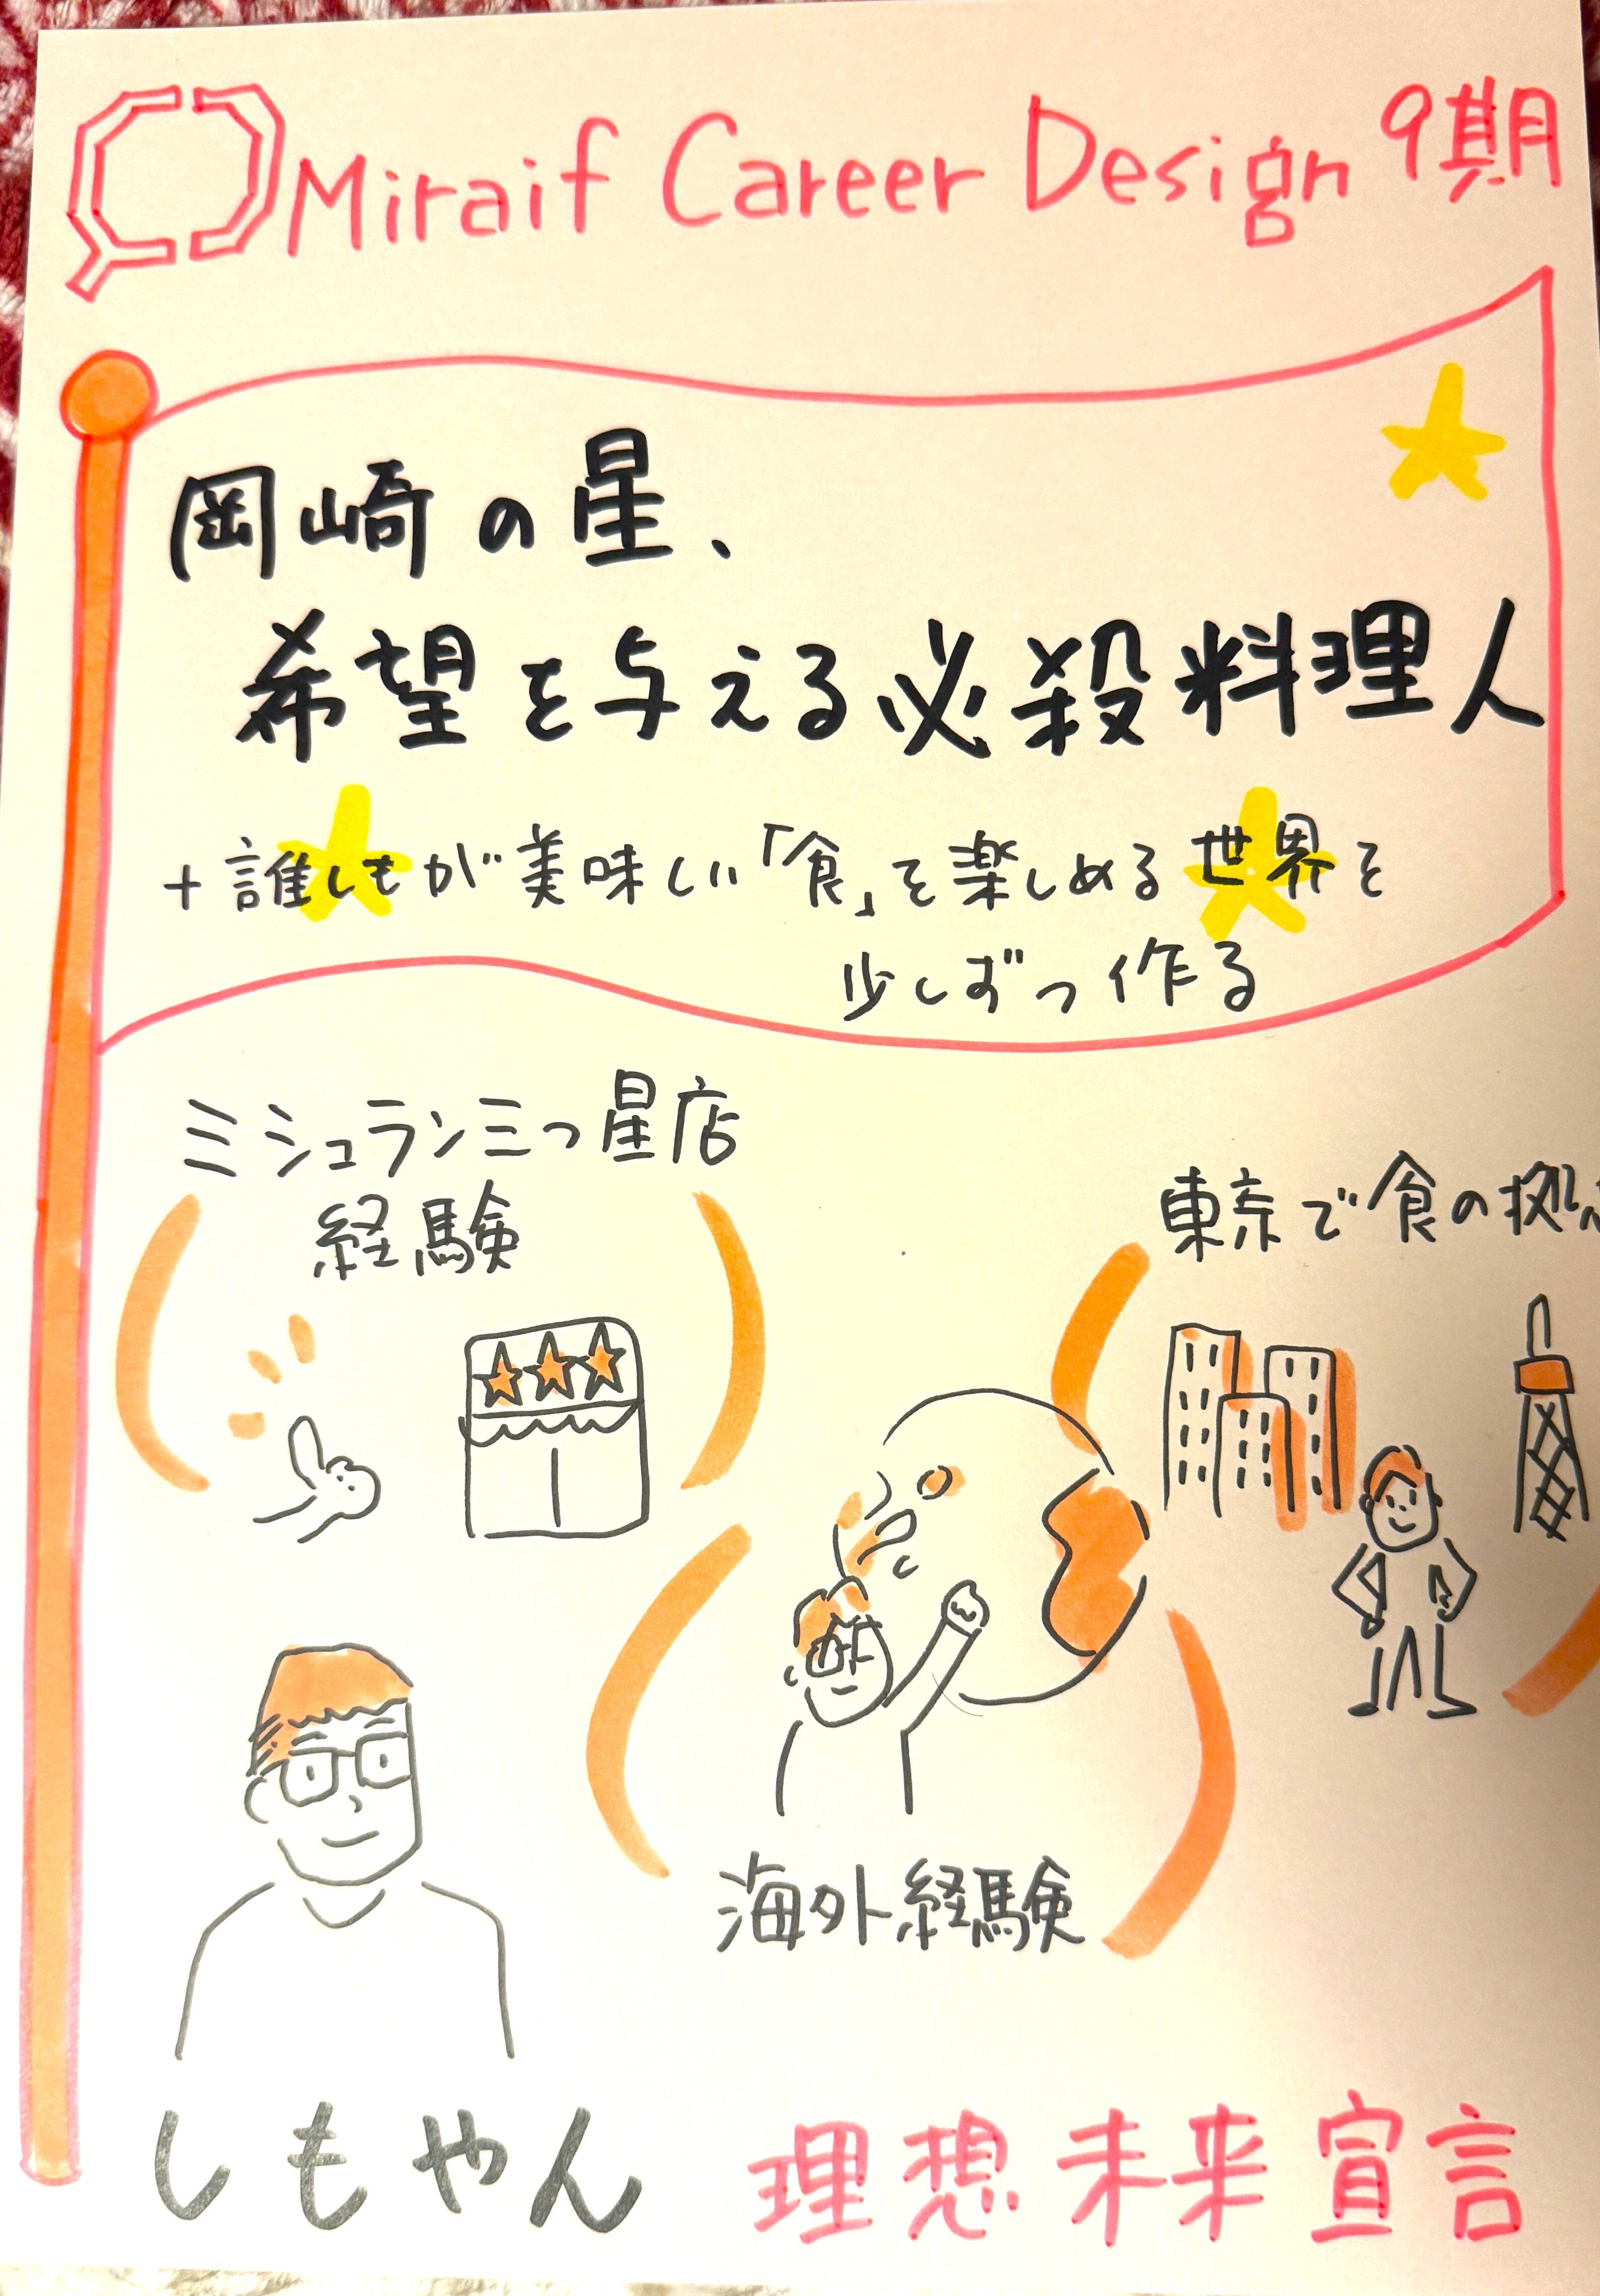 Miraif Career Design 9期
岡崎の星、
希望を与える必殺料理人
+誰しもが美味しい「食」を楽しめる世界を
少しずつ作る
ミシュラン三つ星店
経験
東京で食の拠
海外経験
しもやん
理想未来宣言